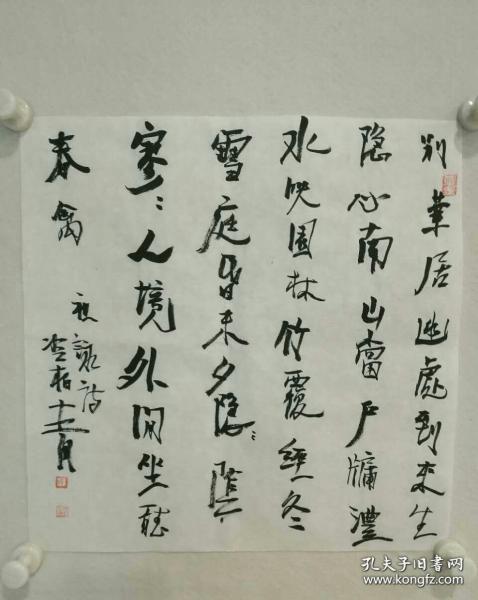 别業居幽處到来生
隐心南山當户牖灃
水映園林竹覆經冬
雪庭昏未夕陰
寥〻人境外閒坐聽
春禽
祖詠詩
孔夫子旧书网
www.kongfz.com